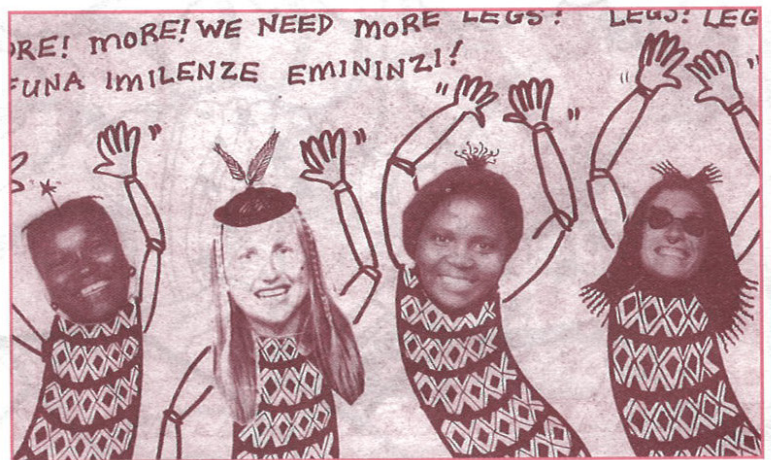 ORE! MORE! WE NEED MORE LEGS! LEGS! LEG
FUNA IMILENZE EMININZI!